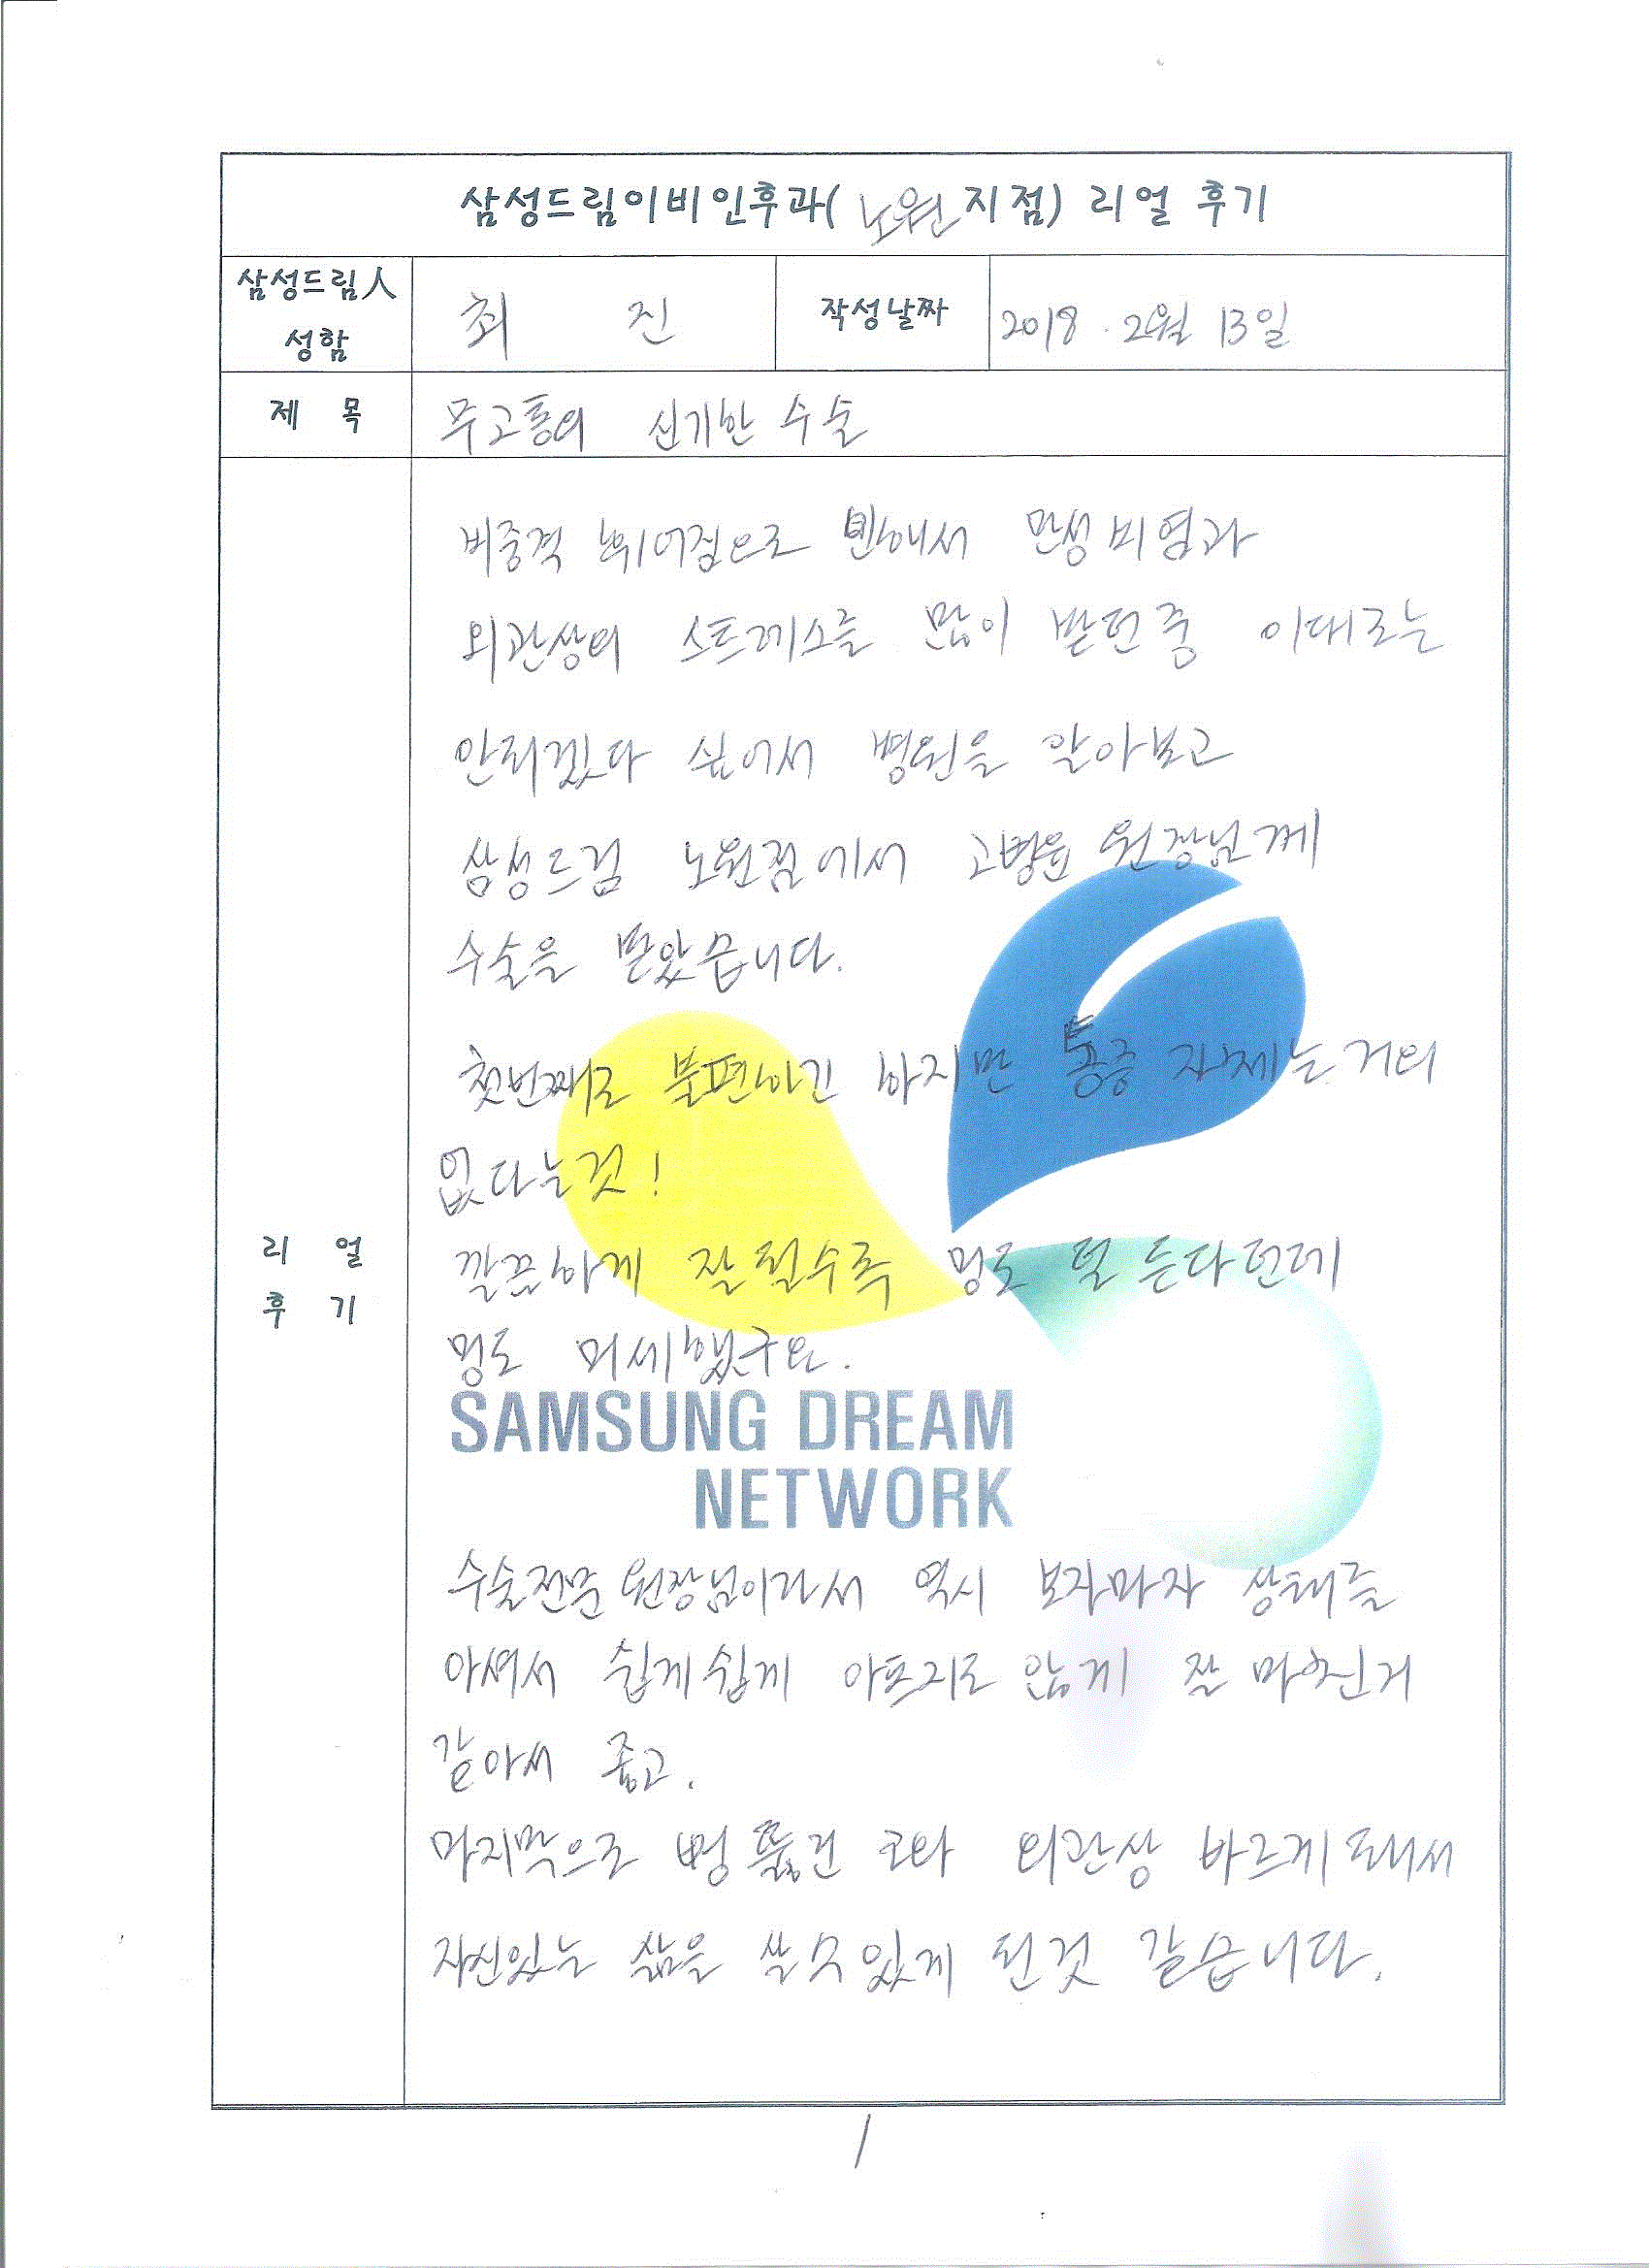 삼성드림이비인후과( 노원 지점) 리얼 후기
삼성드림人
성함
최 진
작성날짜
2018. 2월 13일
제 목
무고통의 신기한 수술
비중격 휘어짐으로 인해서 만성비염과
외관상의 스트레스를 많이 받던중 이대로는
안되겠다 싶어서 병원을 알아보고
삼성드림 노원점에서 원장님께
수술을 받았습니다.
첫번째로 불편하긴 하지만 통증 자체는 거의
없다는것!
리 얼
후 기
깔끔하게 잘될수록 멍도 덜 든다던데
멍도 미세했구요.
SAMSUNG DREAM
NETWORK
수술전문 원장님이라서 역시 보자마자 상태를
아셔서 쉽게쉽게 아프지도 않게 잘 마친거
같아서 좋고.
마지막으로 뻥 뚫린 코와 외관상 바르게 돼서
자신있는 삶을 살수있게 된것 같습니다.
1